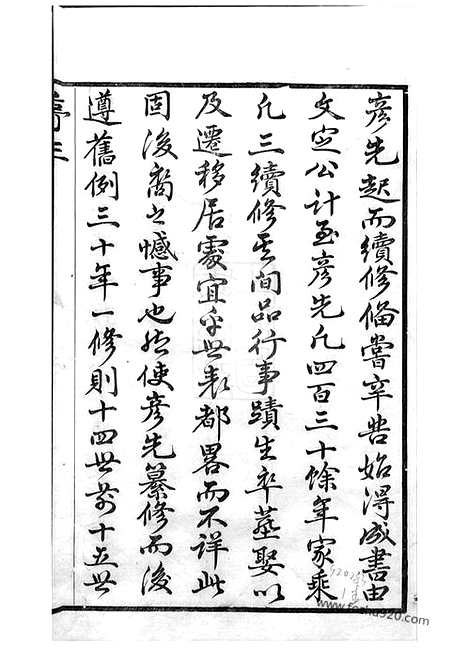 彦先起而續修偹嘗辛苦始得成書由
文定公計至彦先凡四百三十餘年家乘
凡三續修其間品行事蹟生卒墓娶以
及遷移居處宜乎世表都畧而不詳此
固後裔之憾事也然使彦先纂修而後
遵舊例三十年一修則十四世前十五世
www.foshu920.com